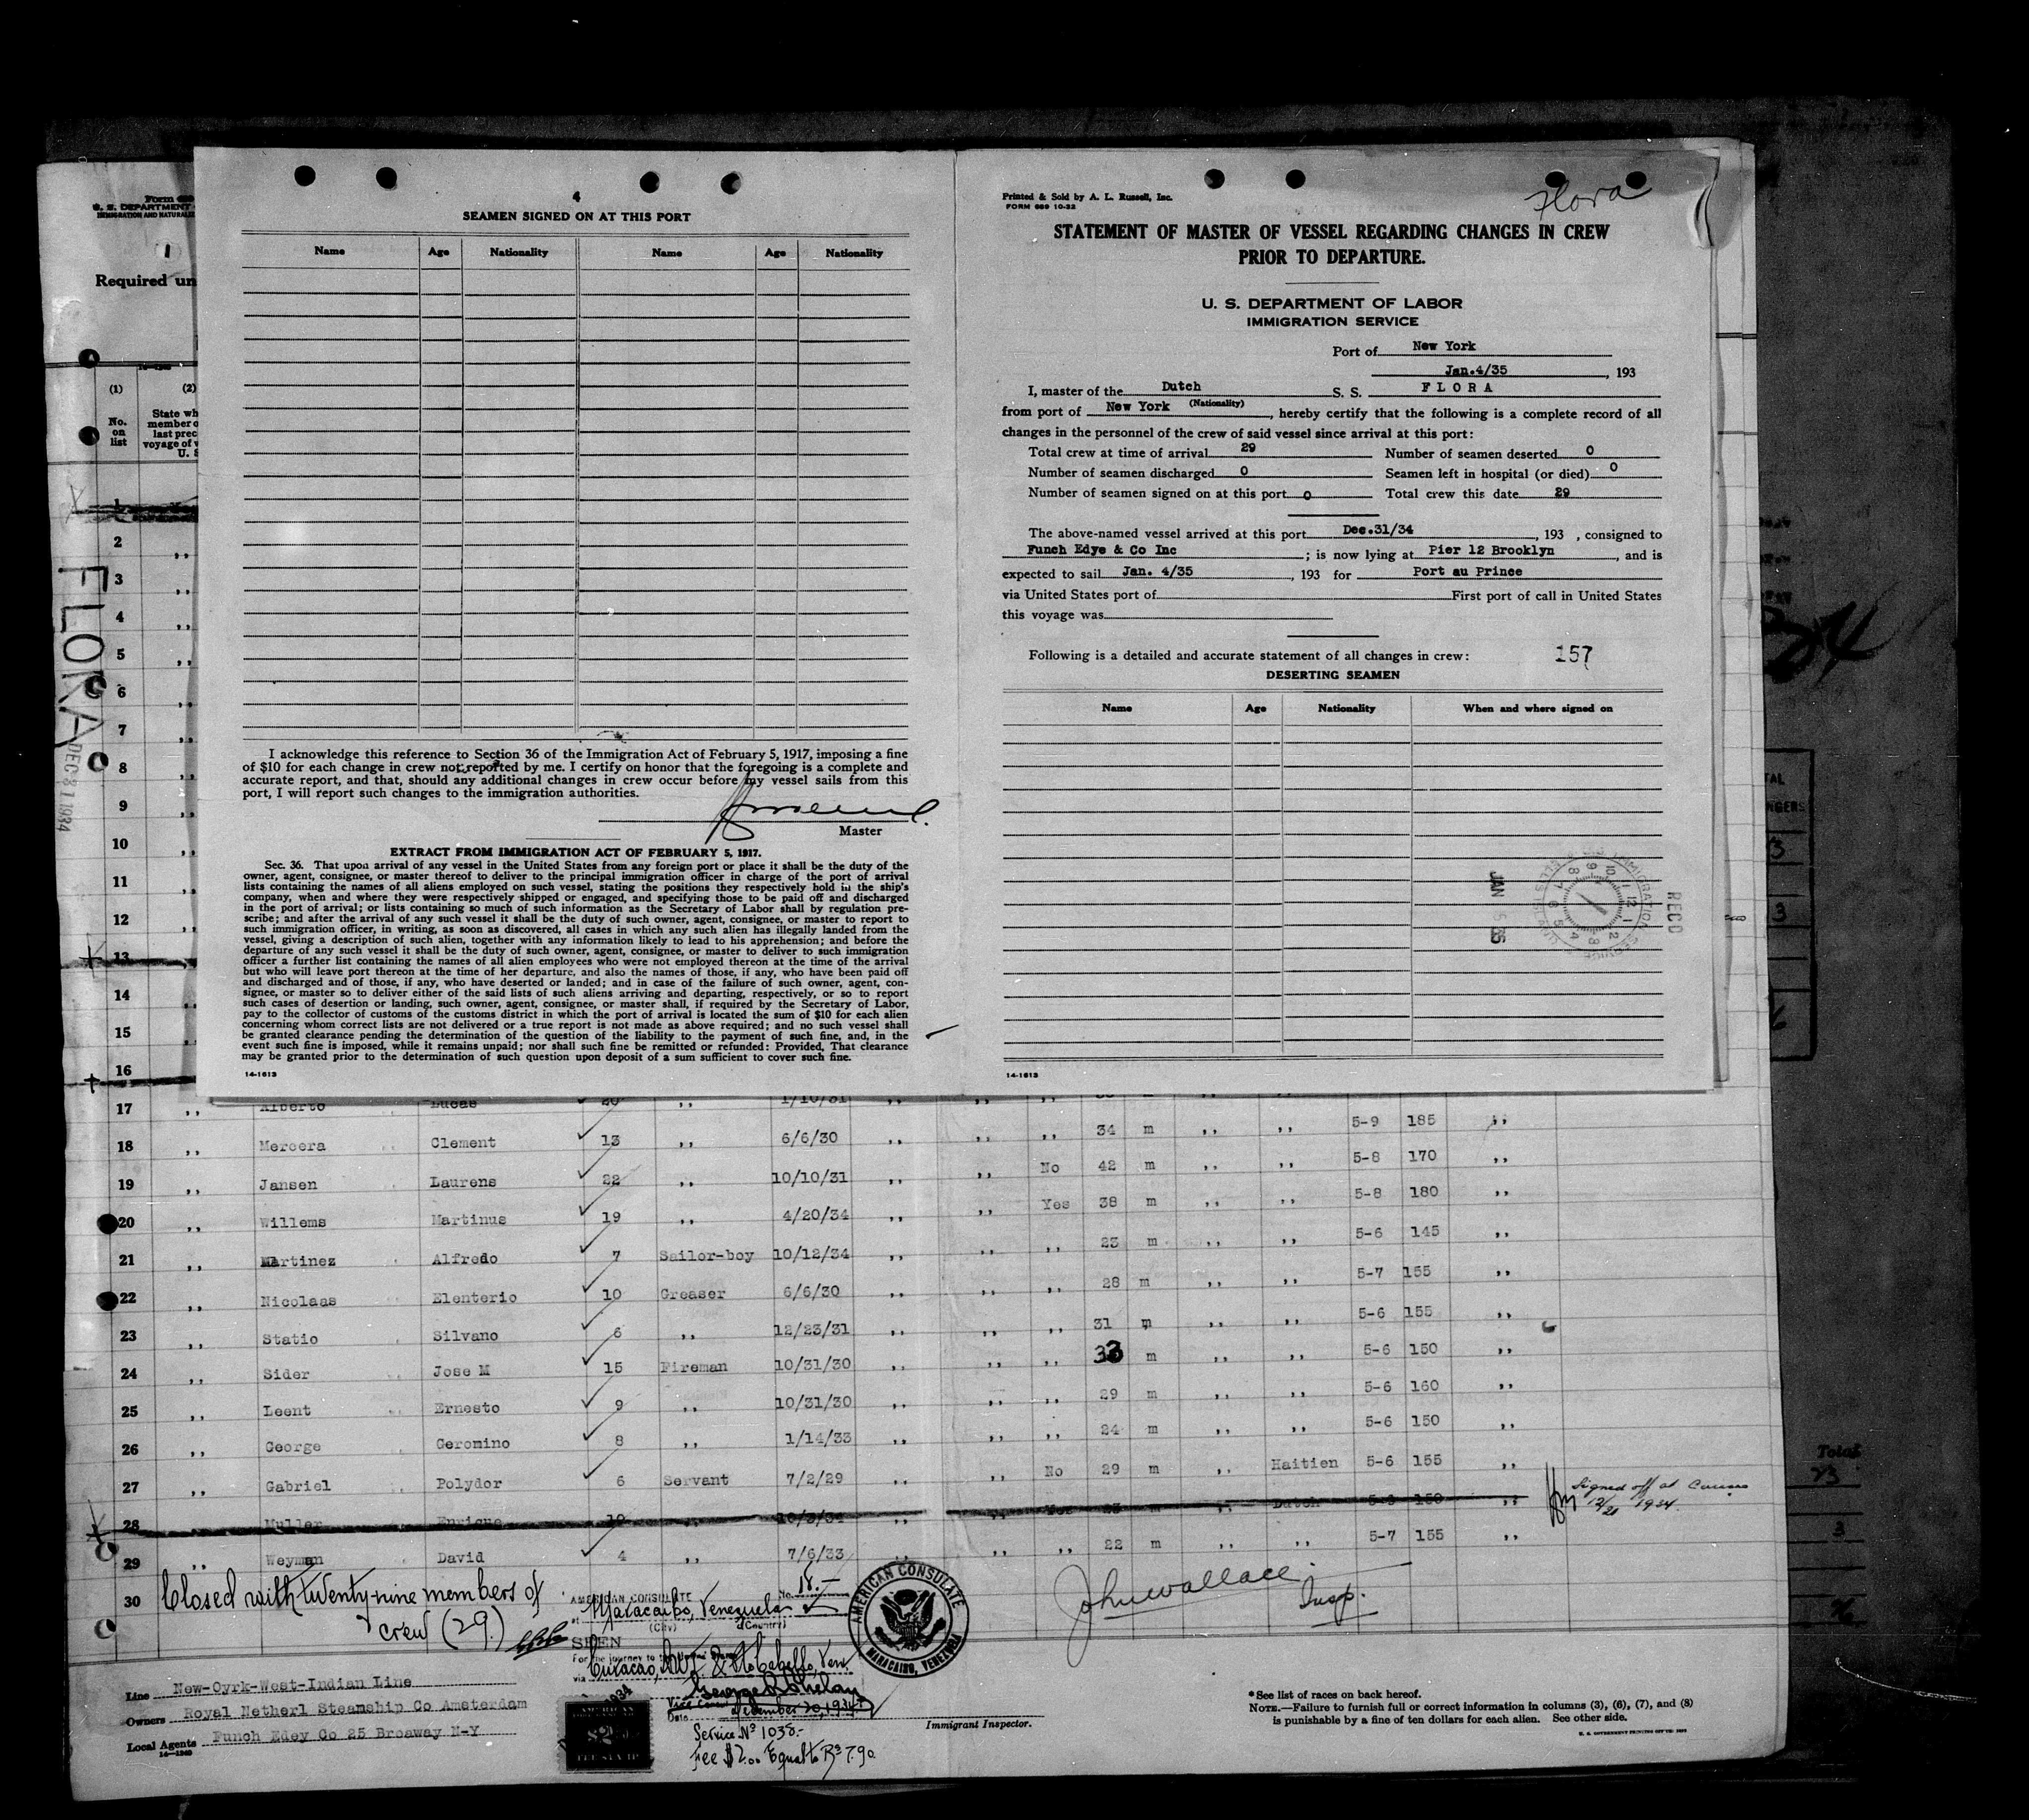 Form 689
U. S. DEPARTMENT
IMMIGRATION AND NATURALIZ
1
Required un
(1)
(2)
No. on list
State wh
member o
last prec
voyage of v
U. S
FLORA
DEC 31 1934
1
2
3
4
5
6
7
8
9
10
11
12
13
14
15
16
4
SEAMEN SIGNED ON AT THIS PORT
Name Age Nationality Name Age Nationality
I acknowledge this reference to Section 36 of the Immigration Act of February 5, 1917, imposing a fine
of $10 for each change in crew not reported by me. I certify on honor that the foregoing is a complete and
accurate report, and that, should any additional changes in crew occur before my vessel sails from this
port, I will report such changes to the immigration authorities.
Master
EXTRACT FROM IMMIGRATION ACT OF FEBRUARY 5, 1917.
Sec. 36. That upon arrival of any vessel in the United States from any foreign port or place it shall be the duty of the
owner, agent, consignee, or master thereof to deliver to the principal immigration officer in charge of the port of arrival
lists containing the names of all aliens employed on such vessel, stating the positions they respectively hold in the ship's
company, when and where they were respectively shipped or engaged, and specifying those to be paid off and discharged
in the port of arrival; or lists containing so much of such information as the Secretary of Labor shall by regulation pre-
scribe; and after the arrival of any such vessel it shall be the duty of such owner, agent, consignee, or master to report to
such immigration officer, in writing, as soon as discovered, all cases in which any such alien has illegally landed from the
vessel, giving a description of such alien, together with any information likely to lead to his apprehension; and before the
departure of any such vessel it shall be the duty of such owner, agent, consignee, or master to deliver to such immigration
officer a further list containing the names of all alien employees who were not employed thereon at the time of the arrival
but who will leave port thereon at the time of her departure, and also the names of those, if any, who have been paid off
and discharged and of those, if any, who have deserted or landed; and in case of the failure of such owner, agent, con-
signee, or master so to deliver either of the said lists of such aliens arriving and departing, respectively, or so to report
such cases of desertion or landing, such owner, agent, consignee, or master shall, if required by the Secretary of Labor,
pay to the collector of customs of the customs district in which the port of arrival is located the sum of $10 for each alien
concerning whom correct lists are not delivered or a true report is not made as above required; and no such vessel shall
be granted clearance pending the determination of the question of the liability to the payment of such fine, and, in the
event such fine is imposed, while it remains unpaid; nor shall such fine be remitted or refunded: Provided, That clearance
may be granted prior to the determination of such question upon deposit of a sum sufficient to cover such fine.
14-1613
Printed & Sold by A. L. Russell, Inc.
FORM 689 10-32
Flora
STATEMENT OF MASTER OF VESSEL REGARDING CHANGES IN CREW
PRIOR TO DEPARTURE.
U. S. DEPARTMENT OF LABOR
IMMIGRATION SERVICE
Port of New York
Jan.4/35, 193
I, master of the Dutch S. S. FLORA
(Nationality)
from port of New York, hereby certify that the following is a complete record of all
changes in the personnel of the crew of said vessel since arrival at this port:
Total crew at time of arrival 29 Number of seamen deserted 0
Number of seamen discharged 0 Seamen left in hospital (or died) 0
Number of seamen signed on at this port 0 Total crew this date 29
The above-named vessel arrived at this port Dec.31/34, 193 , consigned to
Funch Edye & Co Inc; is now lying at Pier 12 Brooklyn, and is
expected to sail Jan. 4/35, 193 for Port au Prince
via United States port of First port of call in United States
this voyage was
Following is a detailed and accurate statement of all changes in crew: 157
DESERTING SEAMEN
Name Age Nationality When and where signed on
JAN 5
REC'D
14-1613
17 ,, Alberto Lucas 20 ,, 1/10/31 ,, ,, ,,
18 ,, Mercera Clement 13 ,, 6/6/30 ,, ,, ,, 34 m ,, ,, 5-9 185 ,,
19 ,, Jansen Laurens 22 ,, 10/10/31 ,, ,, No 42 m ,, ,, 5-8 170 ,,
20 ,, Willems Martinus 19 ,, 4/20/34 ,, ,, Yes 38 m ,, ,, 5-8 180 ,,
21 ,, Martinez Alfredo 7 Sailor-boy 10/12/34 ,, ,, ,, 23 m ,, ,, 5-6 145 ,,
22 ,, Nicolaas Elenterio 10 Greaser 6/6/30 ,, ,, ,, 28 m ,, ,, 5-7 155 ,,
23 ,, Statio Silvano 6 ,, 12/23/31 ,, ,, ,, 31 m ,, ,, 5-6 155 ,,
24 ,, Sider Jose M 15 Fireman 10/31/30 ,, ,, ,, 33 m ,, ,, 5-6 150 ,,
25 ,, Leent Ernesto 9 ,, 10/31/30 ,, ,, ,, 29 m ,, ,, 5-6 160 ,,
26 ,, George Geromino 8 ,, 1/14/33 ,, ,, ,, 24 m ,, ,, 5-6 150 ,,
27 ,, Gabriel Polydor 6 Servant 7/2/29 ,, ,, No 29 m ,, Haitien 5-6 155 ,,
28 ,, Muller Enrique 10 ,, 10/3/34 ,, ,, Yes 23 m ,, Dutch 150 ,, Signed off at
12/21 1934.
29 ,, Weyman David 4 ,, 7/6/33 ,, ,, ,, 22 m ,, ,, 5-7 155 ,,
30
Closed with twenty-nine members of
crew (29.)
AMERICAN CONSULATE No. 18.-
at Maracaibo, Venezuela
(City) (Country)
SEEN
For the journey to the
via Curacao, & Venz.
Vice Consul
Date December 20, 1934
Service Nº 1038.-
Fee $2.00 Equal to Bs 7.90
AMERICAN CONSULATE
MARACAIBO, VENEZUELA
John Wallace
Insp.
Immigrant Inspector.
Line New-Oyrk-West-Indian Line
Owners Royal Netherl Steamship Co Amsterdam
Local Agents Funch Edey Co 25 Broaway N-Y
14-1240
*See list of races on back hereof.
NOTE.—Failure to furnish full or correct information in columns (3), (6), (7), and (8)
is punishable by a fine of ten dollars for each alien. See other side.
Total
3